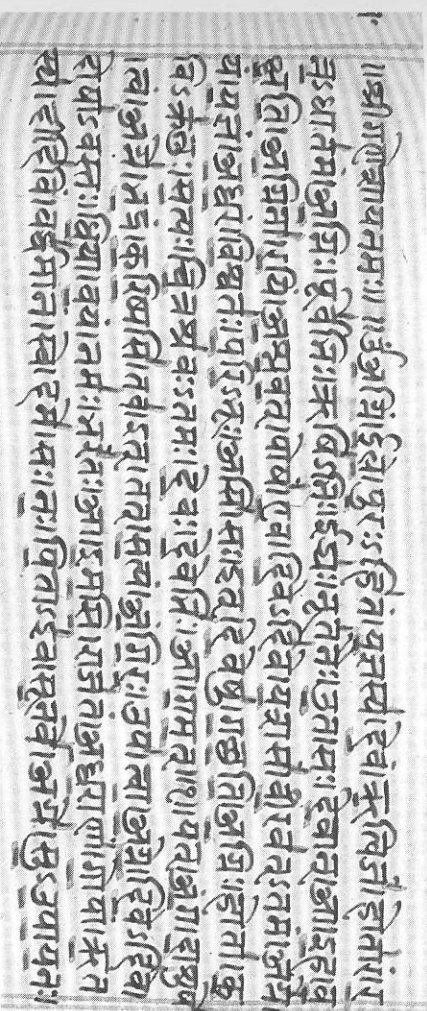 ॥श्रीगणेशायनमः॥ ॥ॐअग्निं।ईळे।पुरःऽहितं।यज्ञस्य।देवं।ऋत्विजं।होतारंर
त्नऽधातमं।अग्निः।पूर्वेभिः।ऋषिऽभिः।ईड्यः।नूतनैः।उत।सः।देवान्।आ।इह।व
क्षति।अग्निना।रयिं।अश्नवत्।पोषं।एव।दिवेऽदिवे।यशसं।वीरवत्ऽतमं।अग्ने
यं।यज्ञं।अध्वरं।विश्वतः।परिऽभूः।असि।सः।इत्।देवेषु।गच्छति।अग्निः।होता।क
विऽक्रतुः।सत्यः।चित्रश्रवःऽतमः।देवः।देवेभिः।आ।गमत्।१।यत्।अंग।दाशुषे
त्वं।अग्ने।भद्रं।करिष्यसि।तव।इत्।तत्।सत्यं।अंगिरः।उप।त्वा।अग्ने।दिवेऽदिवे
दोषाऽवस्तः।धिया।वयं।नमः।भरंतः।आ।इमसि।राजंतं।अध्वराणां।गोपां।ऋत
स्य।दीदिविं।वर्धमानं।स्वे।दमे।सः।नः।पिताऽइव।सूनवे।अग्ने।सुऽउपायनः